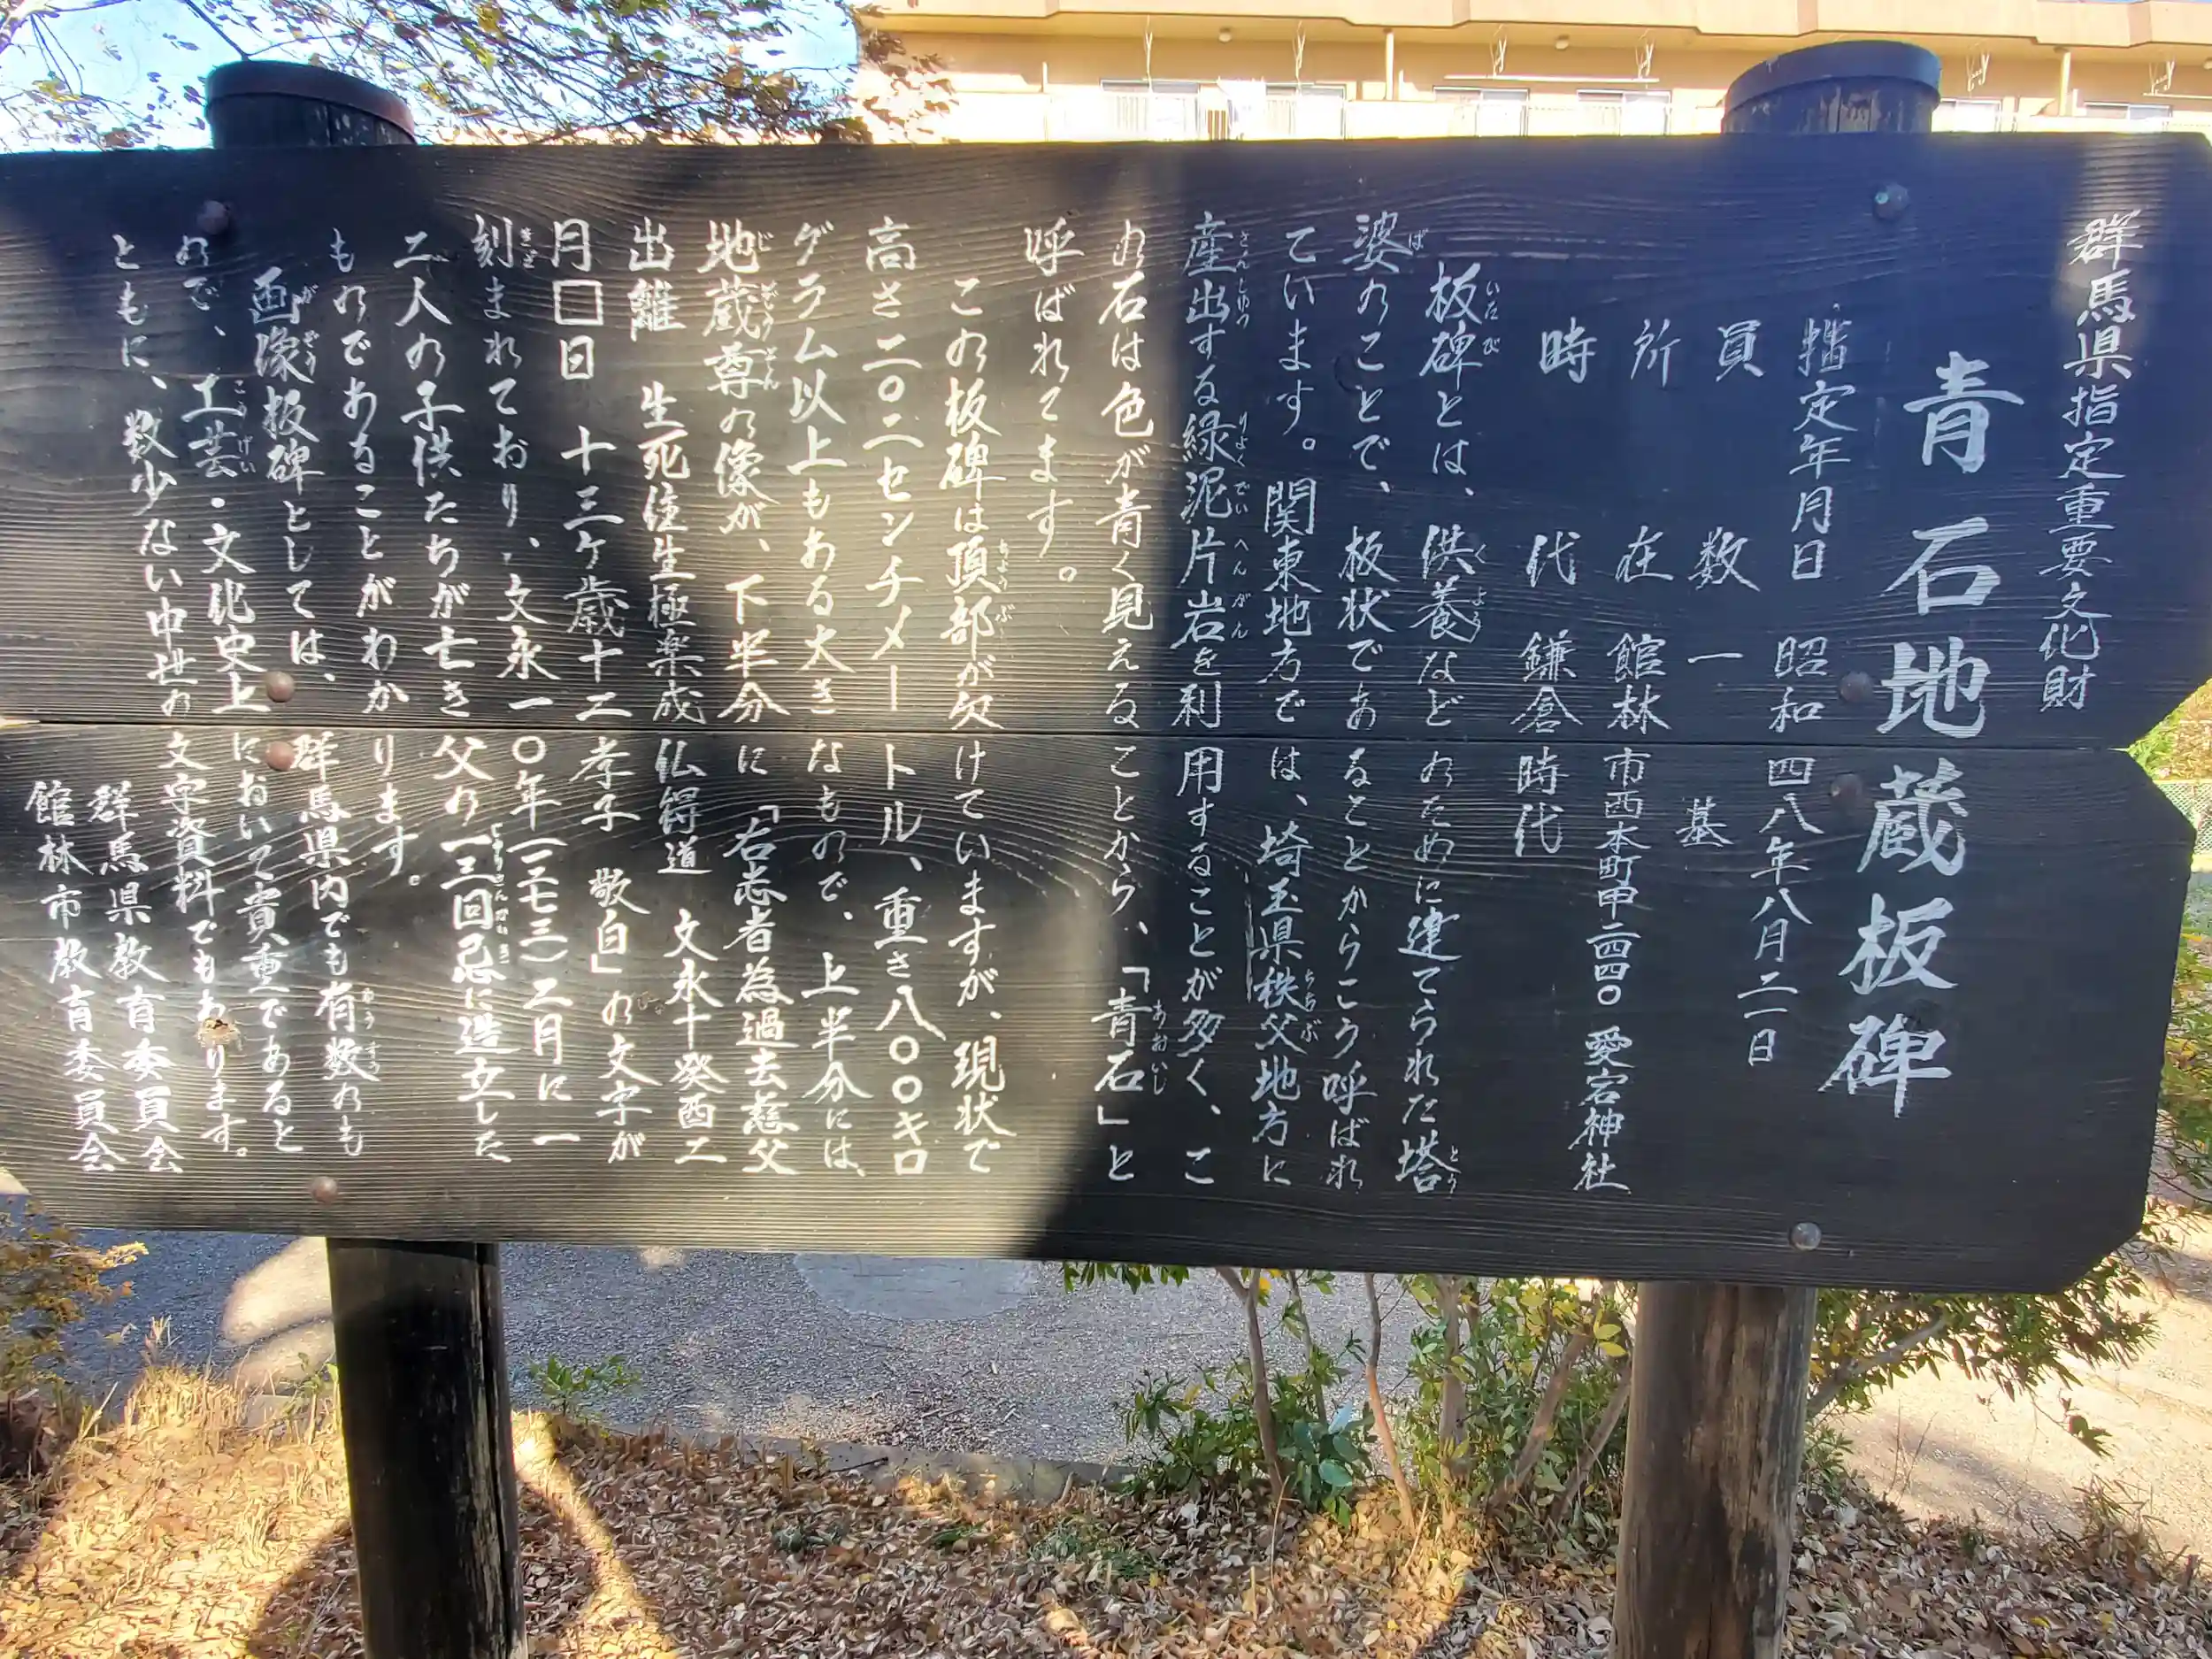 群馬県指定重要文化財
青石地蔵板碑
指定年月日 昭和四八年八月二一日
員数 一基
所在 館林市西本町甲二四四〇 愛宕神社
時代 鎌倉時代
板碑とは、供養などのために建てられた塔
婆のことで、板状であることからこう呼ばれ
ています。関東地方では、埼玉県秩父地方に
産出する緑泥片岩を利用することが多く、こ
の石は色が青く見えることから、「青石」と
呼ばれてます。
この板碑は頂部が欠けていますが、現状で
高さ二〇二センチメートル、重さ八〇〇キロ
グラム以上もある大きなもので、上半分には、
地蔵尊の像が、下半分に「右志者為過去慈父
出離 生死往生極楽成仏得道 文永十癸酉二
月□日 十三ケ歳十二孝子 敬白」の文字が
刻まれており、文永一〇年(一二七三)二月に一
二人の子供たちが亡き父の一三回忌に造立した
ものであることがわかります。
画像板碑としては、群馬県内でも有数のも
ので、工芸・文化史上において貴重であると
ともに、数少ない中世の文字資料でもあります。
群馬県教育委員会
館林市教育委員会